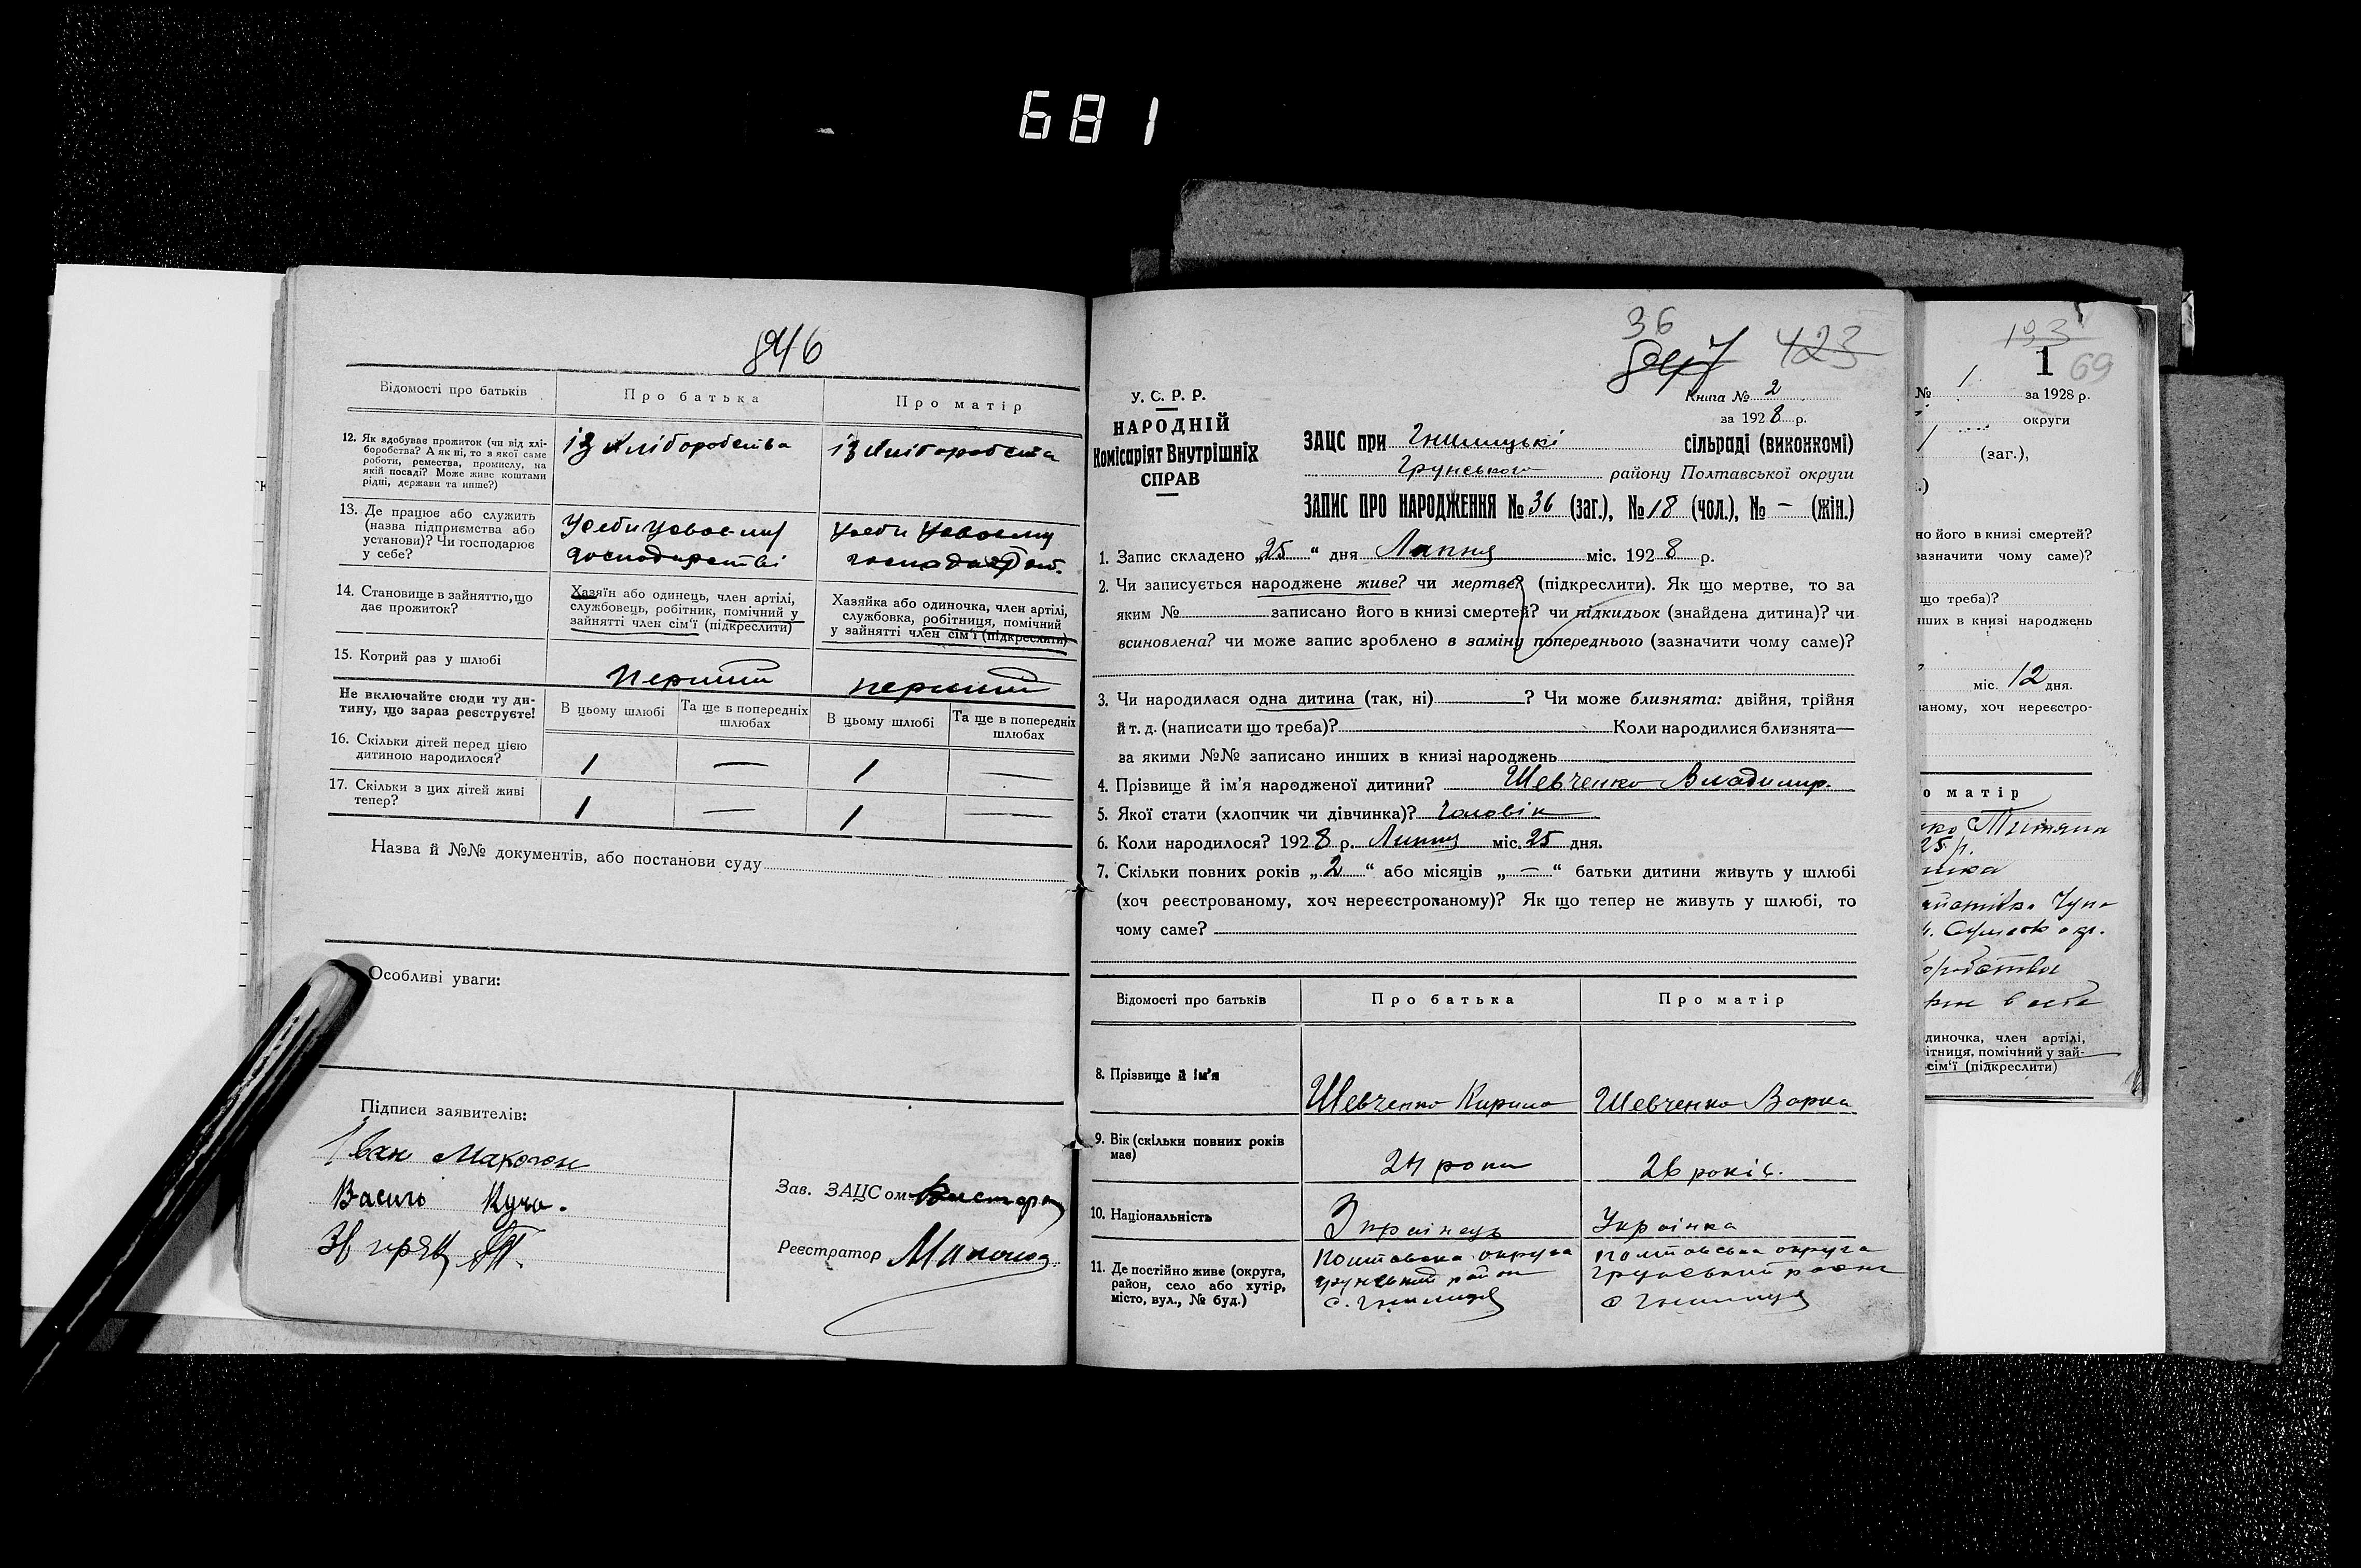 681
846
Відомості про батьків
Про батька
Про матір
12. Як здобуває прожиток (чи від хлі-
боробства? А як ні, то з якої саме
роботи, ремества, промислу, на
якій посаді? Може живе коштами
рідні, держави та инше?)
із хліборобства
із хліборобста
13. Де працює або служить
(назва підприємства або
установи)? Чи господарює
у себе?
господарстві
14. Становище в зайняттю, що
дає прожиток?
Хазяїн або одинець, член артілі,
службовець, робітник, помічний у
зайнятті член сім'ї (підкреслити)
Хазяйка або одиночка, член артілі,
службовка, робітниця, помічний
у зайнятті член сім'ї (підкреслити)
15. Котрий раз у шлюбі
перший
перший
Не включайте сюди ту ди-
тину, що зараз реєструєте!
В цьому шлюбі
Та ще в попередніх
шлюбах
В цьому шлюбі
Та ще в попередніх
шлюбах
16. Скільки дітей перед цією
дитиною народилося?
1 — 1 —
17. Скільки з цих дітей живі
тепер?
1 — 1 —
Назва й №№ документів, або постанови суду
Особливі уваги:
Підписи заявителів:
Іван Макогон
Василь
Зав. ЗАЦСом
Реєстратор
36
423
Книга № 2
за 1928 р.
У. С. Р. Р.
НАРОДНІЙ
Комісаріят Внутрішніх
СПРАВ
ЗАЦС при Гнилицькі сільраді (виконкомі)
Грунського району Полтавської округи
ЗАПИС ПРО НАРОДЖЕННЯ № 36 (заг.), № 18 (чол.), № — (жін.)
1. Запис складено „25“ дня Липня міс. 1928 р.
2. Чи записується народжене живе? чи мертве? (підкреслити). Як що мертве, то за
яким № записано його в книзі смертей? чи підкидьок (знайдена дитина)? чи
всиновлена? чи може запис зроблено в заміну попереднього (зазначити чому саме)?
3. Чи народилася одна дитина (так, ні) ? Чи може близнята: двійня, трійня
й т. д. (написати що треба)? Коли народилися близнята—
за якими №№ записано инших в книзі народжень
4. Прізвище й ім'я народженої дитини? Шевченко Владимир.
5. Якої стати (хлопчик чи дівчинка)? Чоловік
6. Коли народилося? 1928 р. Липня міс. 25 дня.
7. Скільки повних років „2“ або місяців „—“ батьки дитини живуть у шлюбі
(хоч реєстрованому, хоч нереєстрованому)? Як що тепер не живуть у шлюбі, то
чому саме?
Відомості про батьків
Про батька
Про матір
8. Прізвище й ім'я
Шевченко Кирило
Шевченко Варка
9. Вік (скільки повних років
має)
24 роки
26 років.
10. Національність
Украінець
Украінка
11. Де постійно живе (округа,
район, село або хутір,
місто, вул., № буд.)
Полтавска округа
грунський район
с. Гнилиця
полтавська округа
грунський район
с Гнилиця
1
69
№ 1 за 1928 р.
округи
(заг.),
но його в книзі смертей?
зазначити чому саме)?
що треба)?
нших в книзі народжень
міс. 12 дня.
ваному, хоч нереєстро-
о матір
диночка, член артілі,
ітниця, помічний у зай-
сім'ї (підкреслити)